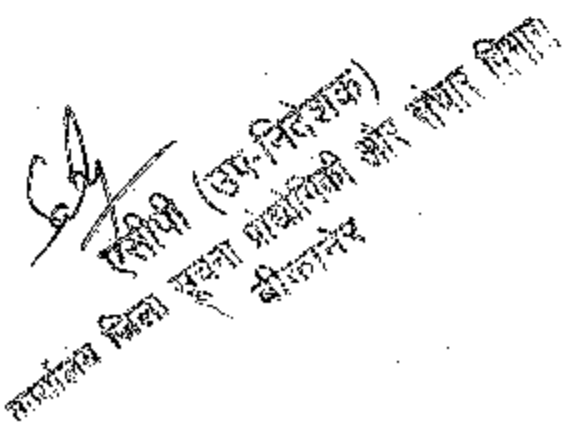 एसीपी (उप-निदेशक)
कार्यालय जिला सूचना प्रोद्योगिकी और संचार विभाग
बीकानेर